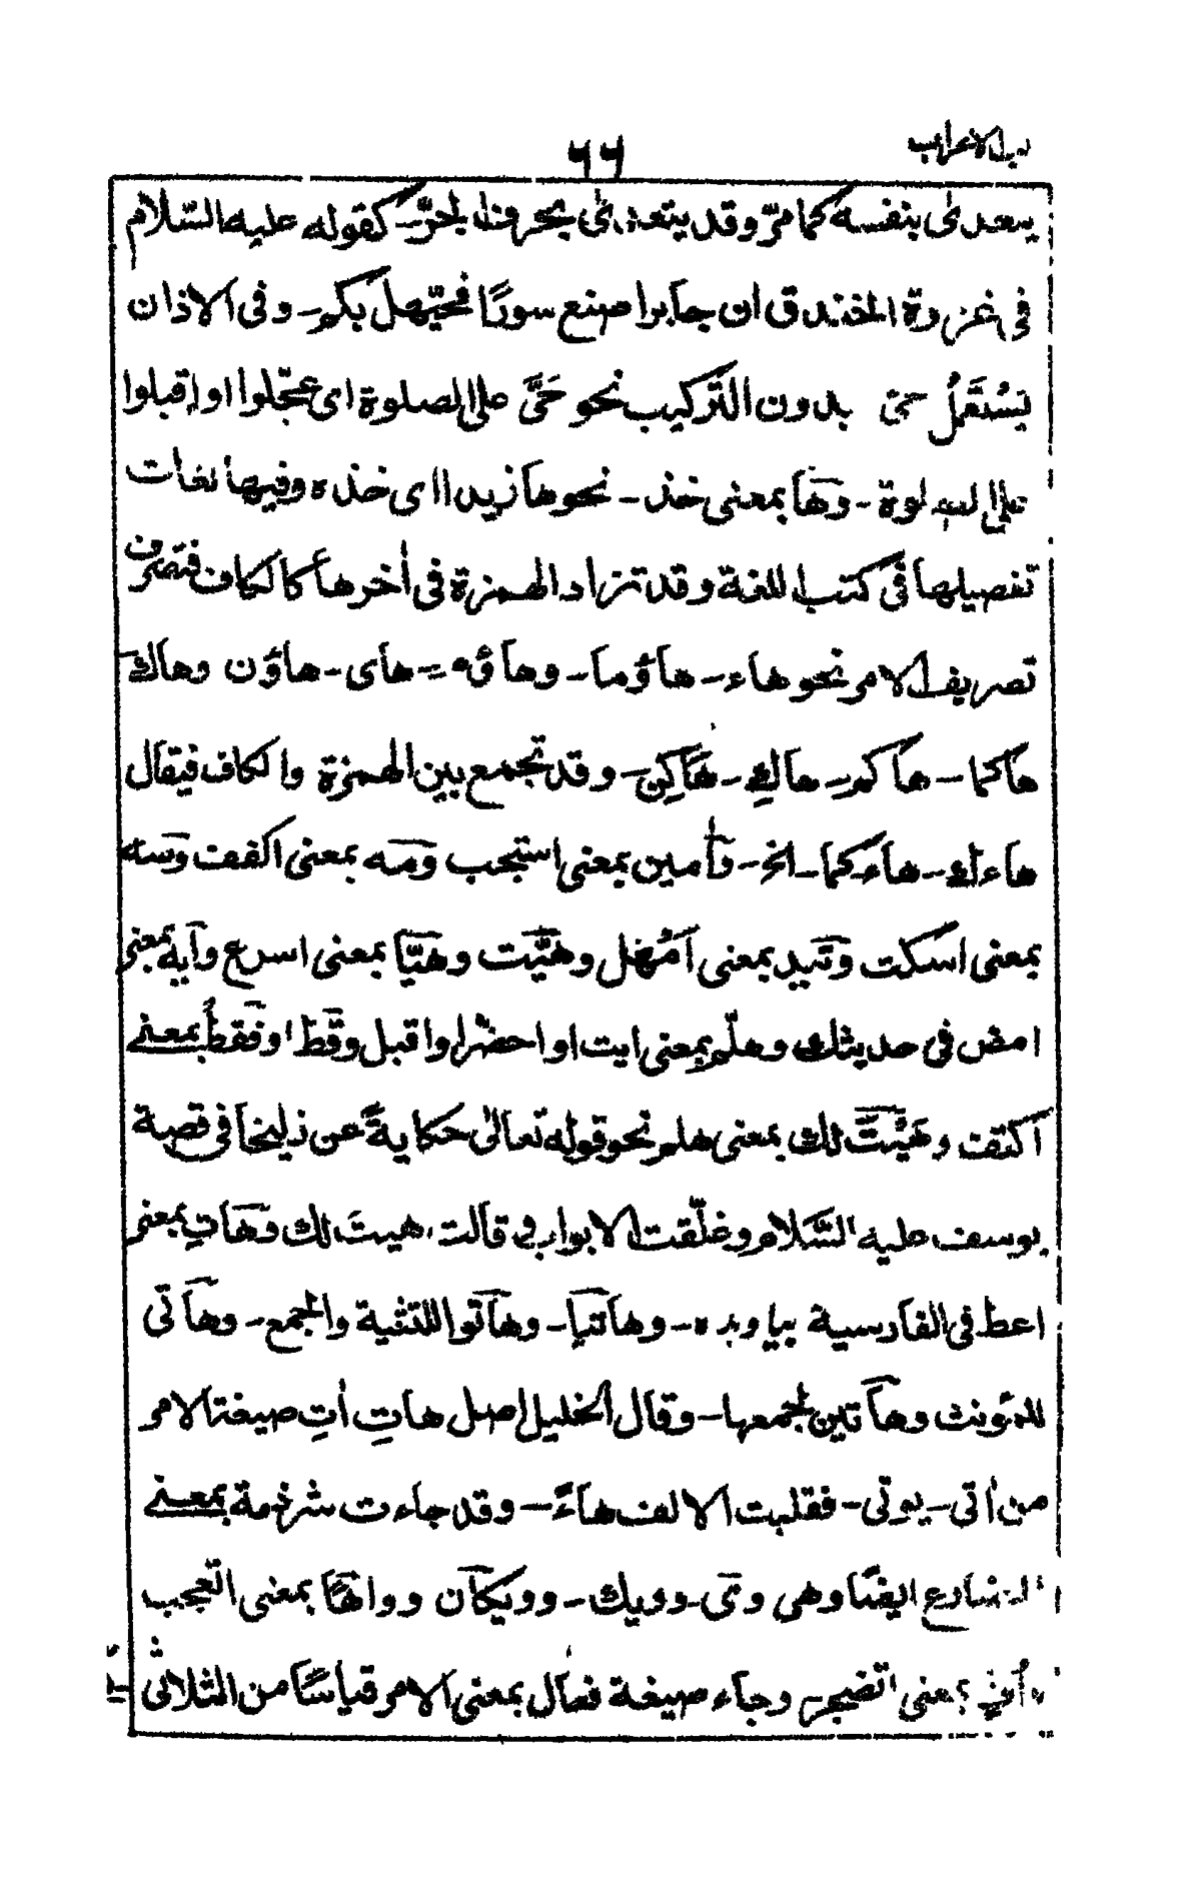 الاعراب
٦٦
يتعدى بنفسه كما مرّ وقد يتعدى بحرف الجرّ۔ كقوله عليه السّلام
فى غزوة الخندق ان جابرا صنع سورًا فحيّهل بكم۔ وفى الاذان
يُسْتَعْمَلُ حىّ بدون التّركيب نحو حَىَّ على الصلوة اى عجّلوا او اقبلوا
على الصلوة۔ وها بمعنى خذ۔ نحو ها زيدا اى خذه وفيها لغات
تفصيلها فى كتب اللغة وقد تزاد الهمزة فى أخرها كالكاف فتصرف
تصريف الامر نحو هاء۔ هاؤما۔ وهاؤم۔ هاى۔ هاؤن وهاك
هاكما۔ هاكم۔ هاكِ۔ هَاكِن۔ وقد تجمع بين الهمزة والكاف فيقال
هاءك۔ هاءكما۔ الخ۔ وأمين بمعنى استجب ومه بمعنى اكفف وسه
بمعنى اسكت وتيد بمعنى اَمْهِل وهَيْت وهَيَّا بمعنى اسرع وايه بمعنى
امض فى حديثك وهلّم بمعنى ايت او احضر او اقبل وقط او فقط بمعنى
اكتف وهَيْتَ لك بمعنى هلم نحو قوله تعالىٰ حكايةً عن زليخا فى قصة
يوسف عليه السَّلام وغلّقت الابواب وقالت هيتَ لك وهاتِ بمعنى
اعط فى الفارسية بيا وبده۔ وهاتيا۔ وهاتوا للتثنية والجمع۔ وهاتى
للمؤنث وهاتين لجمعها۔ وقال الخليل اصل هاتِ أتِ صيغة الامر
من أتى۔ يوتى۔ فقلبت الالف هاءً۔ وقد جاءت شرذمة بمعنى
المضارع ايضًا وهى وى۔ وويك۔ وويكأن وواهًا بمعنى التعجب
وأفٍ بمعنى اتضجر۔ وجاء صيغة فعال بمعنى الامر قياسًا من الثلاثى